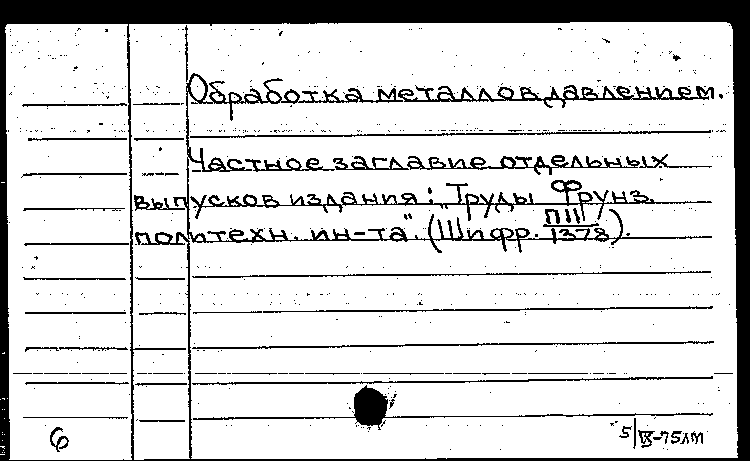 Обработка металлов давлением.
Частное заглавие отдельных
выпусков издания: „Труды Фрунз.
политехн. ин-та". (Шифр. ПIII/1378).
6 5/IX-75лм